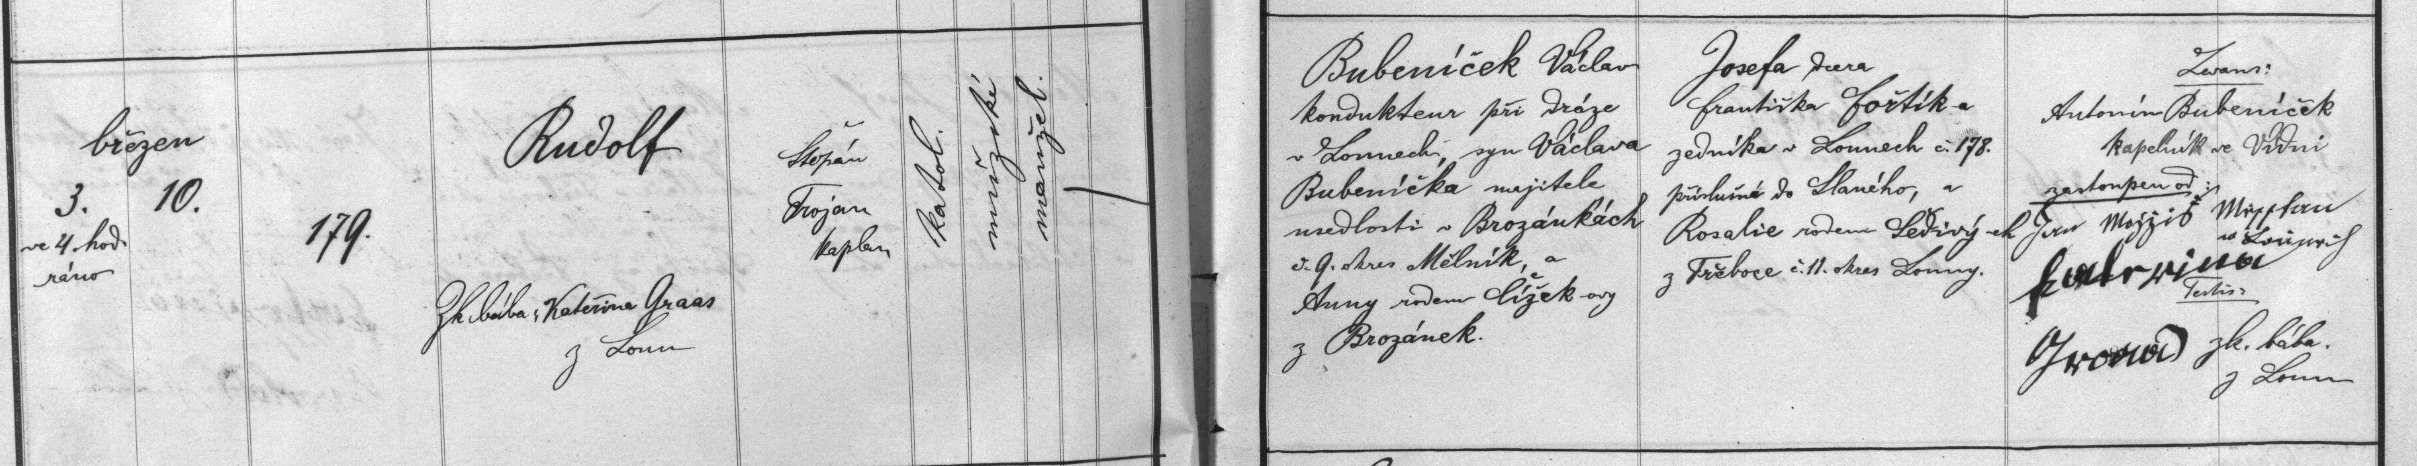 březen
3.
10.
ve 4. hod.
ráno
179.
Rudolf
Zk. bába: Kateřina Graas
z Loun
Štěpán
Trojan
kaplan
katol.
mužské
manžel.
Bubeníček Václav
kondukteur při dráze
v Lounech, syn Václava
Bubeníčka majitele
usedlosti v Brozánkách
č. 9. okres Mělník, a
Anny rodem Čížek-ovy
z Brozánek.
Josefa dcera
Františka Fořtík-a
zedníka v Lounech č. 178.
příslušná do Slaného, a
Rosalie rodem Šedivý-ch
z Třeboce č. 11. okres Louny.
Levans:
Antonín Bubeníček
kapelník ve Vídni
zastoupen od:
Jan
Kateřina
Testis:
Graas zk. bába.
z Loun